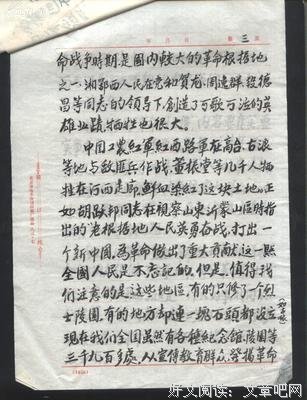 第 三 页
命战争时期,是国内较大的革命根据地
之一,湘鄂西人民在党和贺龙、周逸群、段德
昌等同志的领导下,创造了可歌可泣的英
雄业蹟,牺牲也很大。
中国工农红军西路军在高台、古浪
等地与敌匪兵作战,董振堂等几千人牺
牲在河西走廊,鲜血染红了这块土地。正
如胡跃邦同志在视察山东沂蒙山区时指
出的:老根据地人民英勇奋战,打出一
个新中国,为革命做出了重大贡献,这一点
全国人民是不忘记的。但是,值得我
们注意的是这些地区,有的只修了个烈
士陵园,有的地方却连一块石头都没立
现在我们全国虽然有各种纪念馆、陵园等
三千九百多处,从宣传教育群众,发扬革命
好文阅读:文章吧网